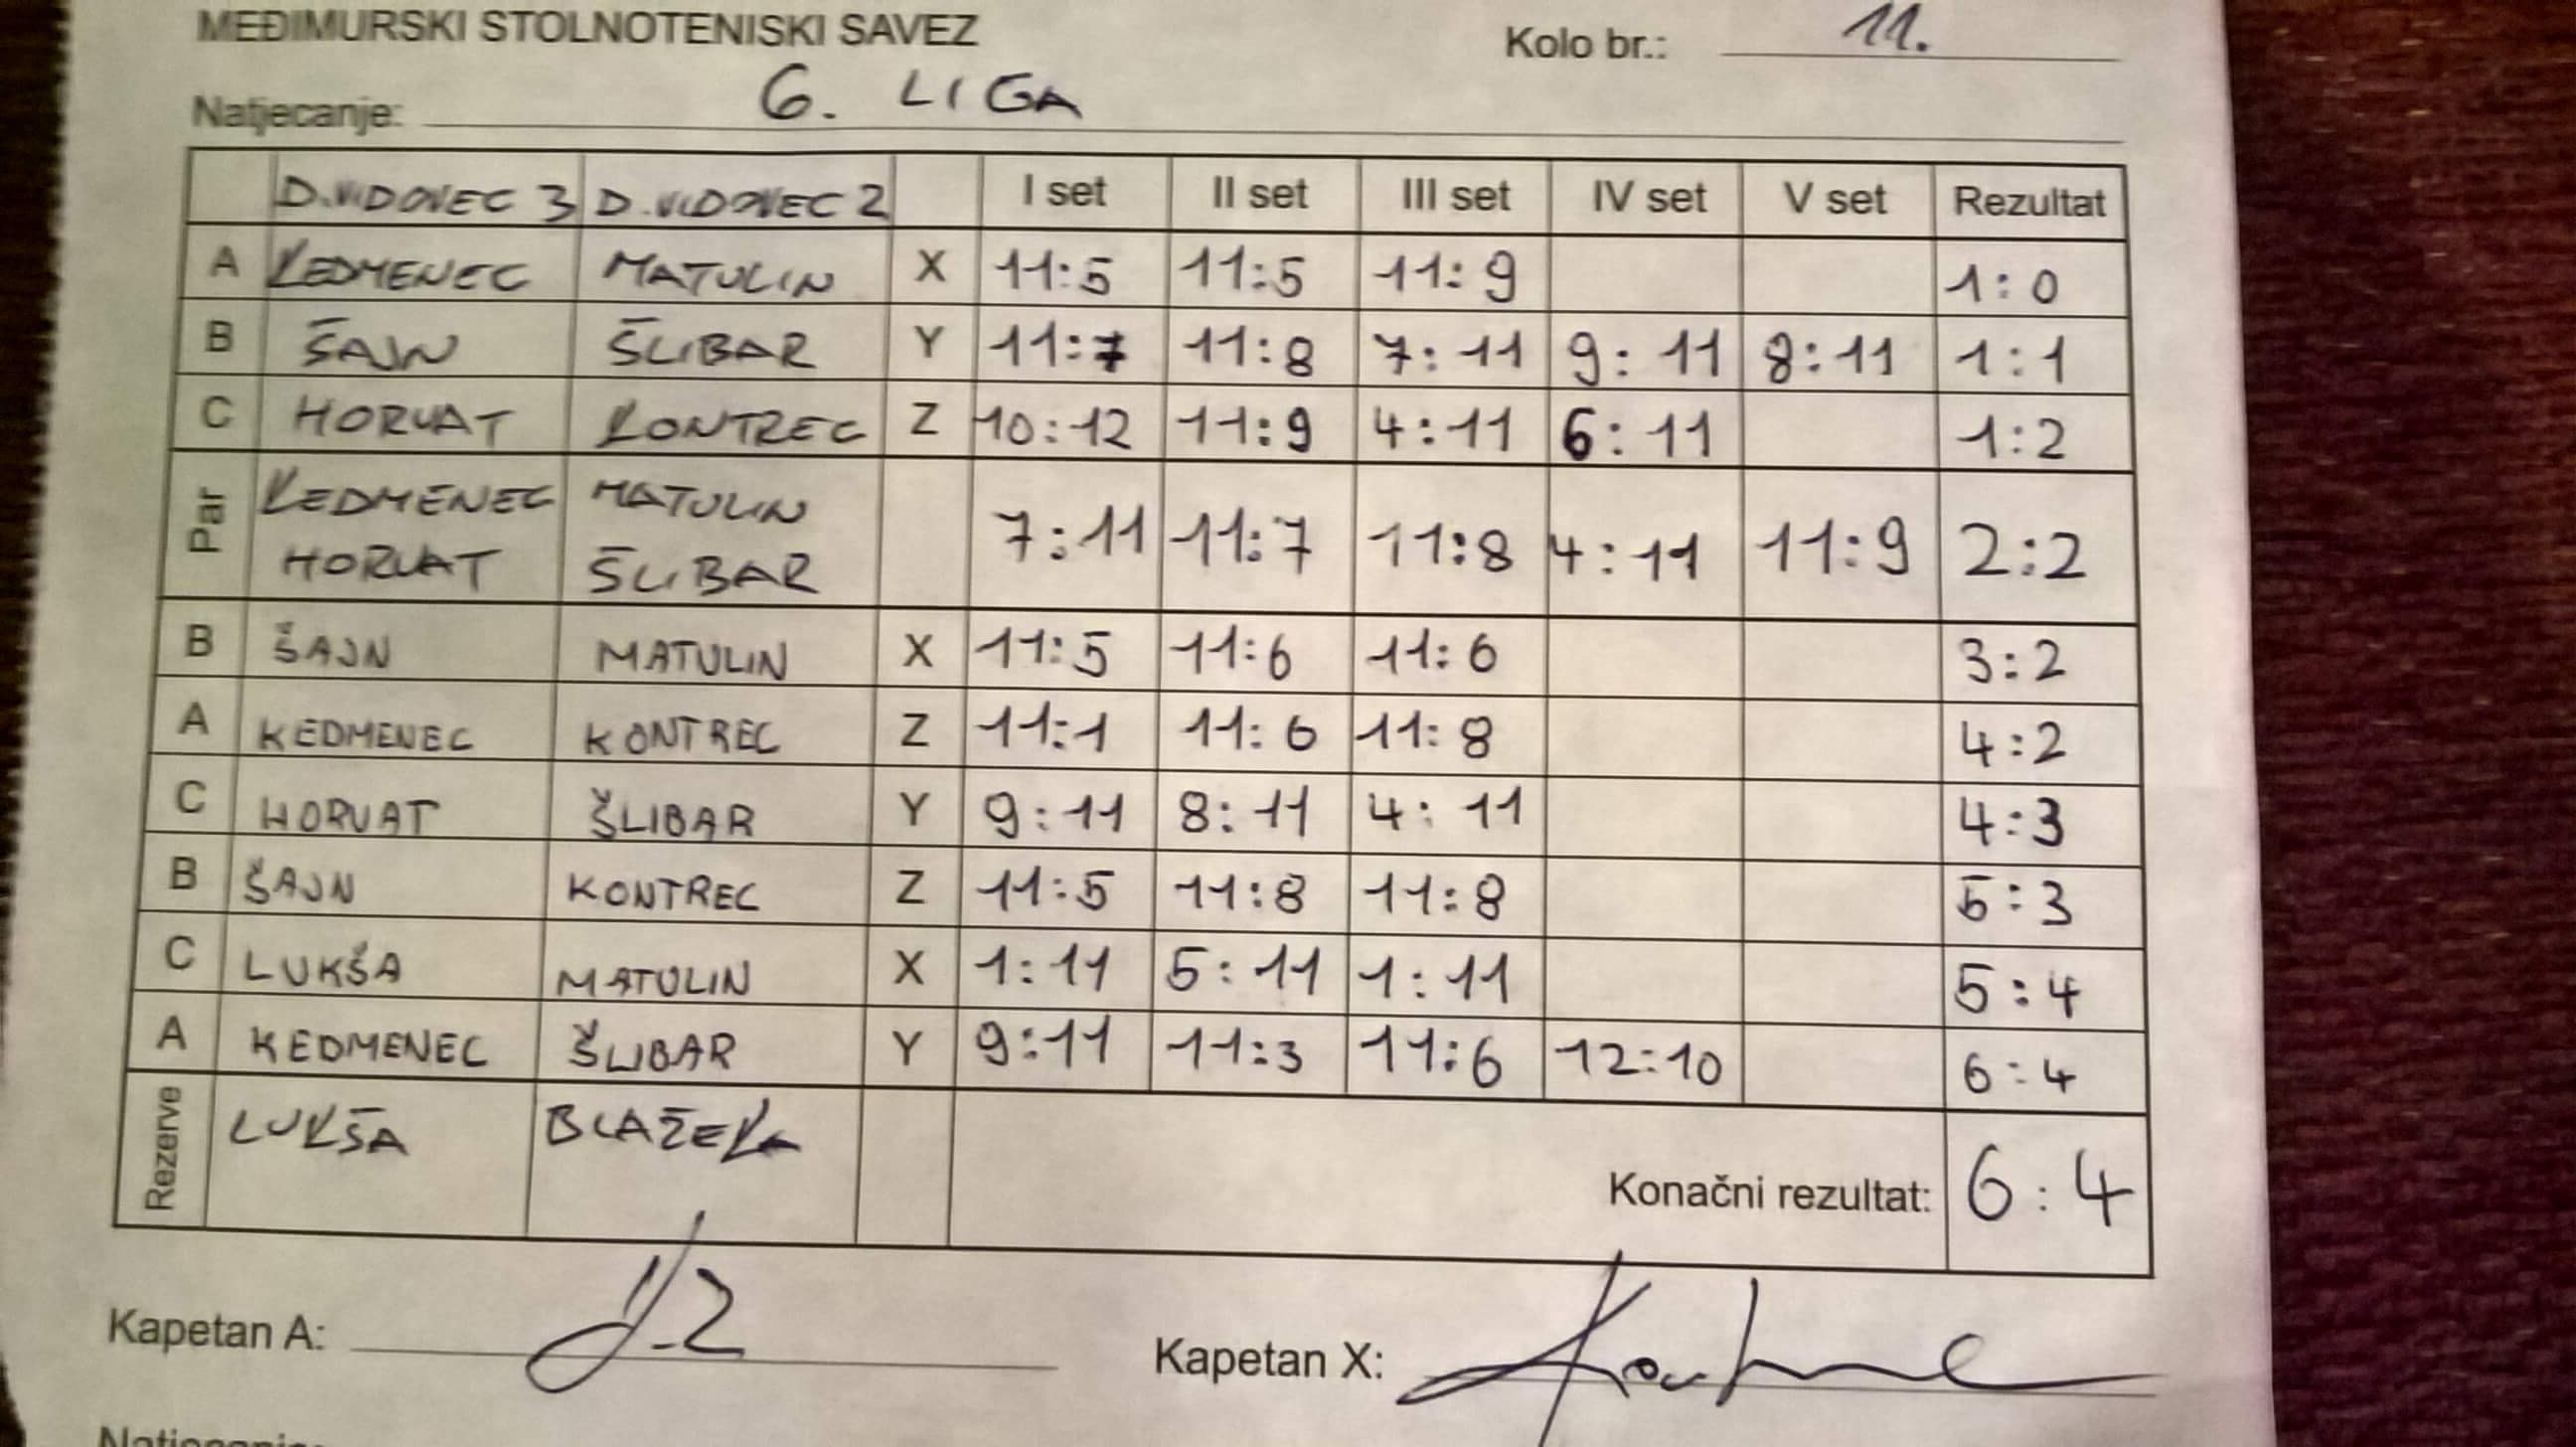 MEĐIMURSKI STOLNOTENISKI SAVEZ Kolo br.: 11.
Natjecanje: 6. LIGA
D.VIDOVEC 3 D.VIDOVEC 2 I set II set III set IV set V set Rezultat
A KEDMENEC MATULIN X 11:5 11:5 11:9 1:0
B ŠAJN ŠLIBAR Y 11:7 11:8 7:11 9:11 8:11 1:1
C HORVAT KONTREC Z 10:12 11:9 4:11 6:11 1:2
Par KEDMENEC MATULIN 7:11 11:7 11:8 4:11 11:9 2:2
HORVAT ŠLIBAR
B ŠAJN MATULIN X 11:5 11:6 11:6 3:2
A KEDMENEC KONTREC Z 11:1 11:6 11:8 4:2
C HORVAT ŠLIBAR Y 9:11 8:11 4:11 4:3
B ŠAJN KONTREC Z 11:5 11:8 11:8 5:3
C LUKŠA MATULIN X 1:11 5:11 1:11 5:4
A KEDMENEC ŠLIBAR Y 9:11 11:3 11:6 12:10 6:4
Rezerve LUKŠA BLAŽEKA
Konačni rezultat: 6:4
Kapetan A: Kapetan X: